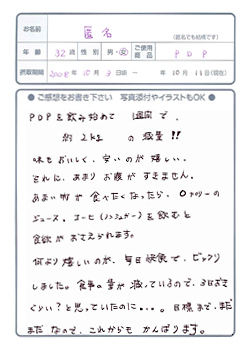 お名前 匿名
(匿名でも結構です)
年齢 32歳 性別 男・女 ご使用商品 PDP
摂取期間 2008年10月3日頃 ～ 年10月11日(現在)
● ご感想をお書き下さい 写真添付やイラストもOK ●
PDPを飲み始めて 1週間で、
約2kg の減量!!
味もおいしく、安いのが嬉しい。
それに、あまりお腹がすきません。
あまい物が食べたくなったら、0カロリーの
ジュース、コーヒー(ノンシュガー)を飲むと
食欲がおさえられます。
何より嬉しいのが、毎日快食で、ビックリ
しました。食事の量が減っているので、3日おき
ぐらい?と思っていたのに・・・。目標まで、まだ
まだなので、これからもがんばります。